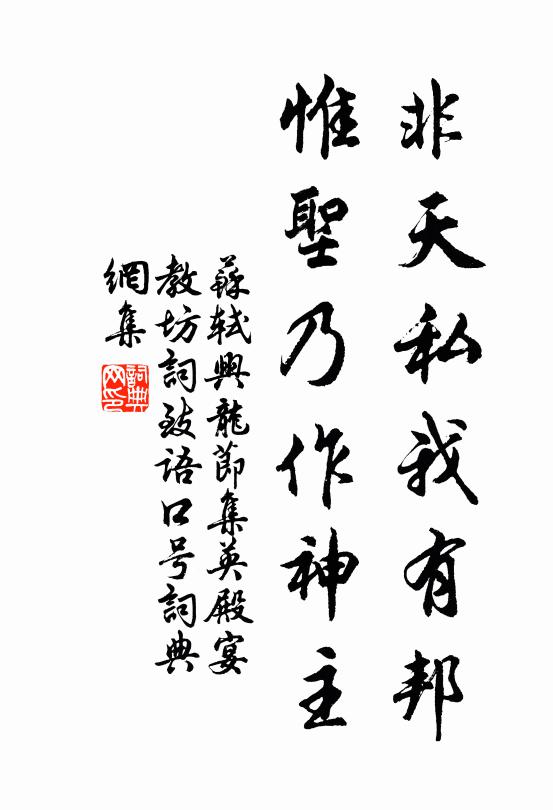 非天私我有邦
惟聖乃作神主
蘇軾興龍節集英殿宴
教坊詞致語口号詞典
網集
詞典
网印